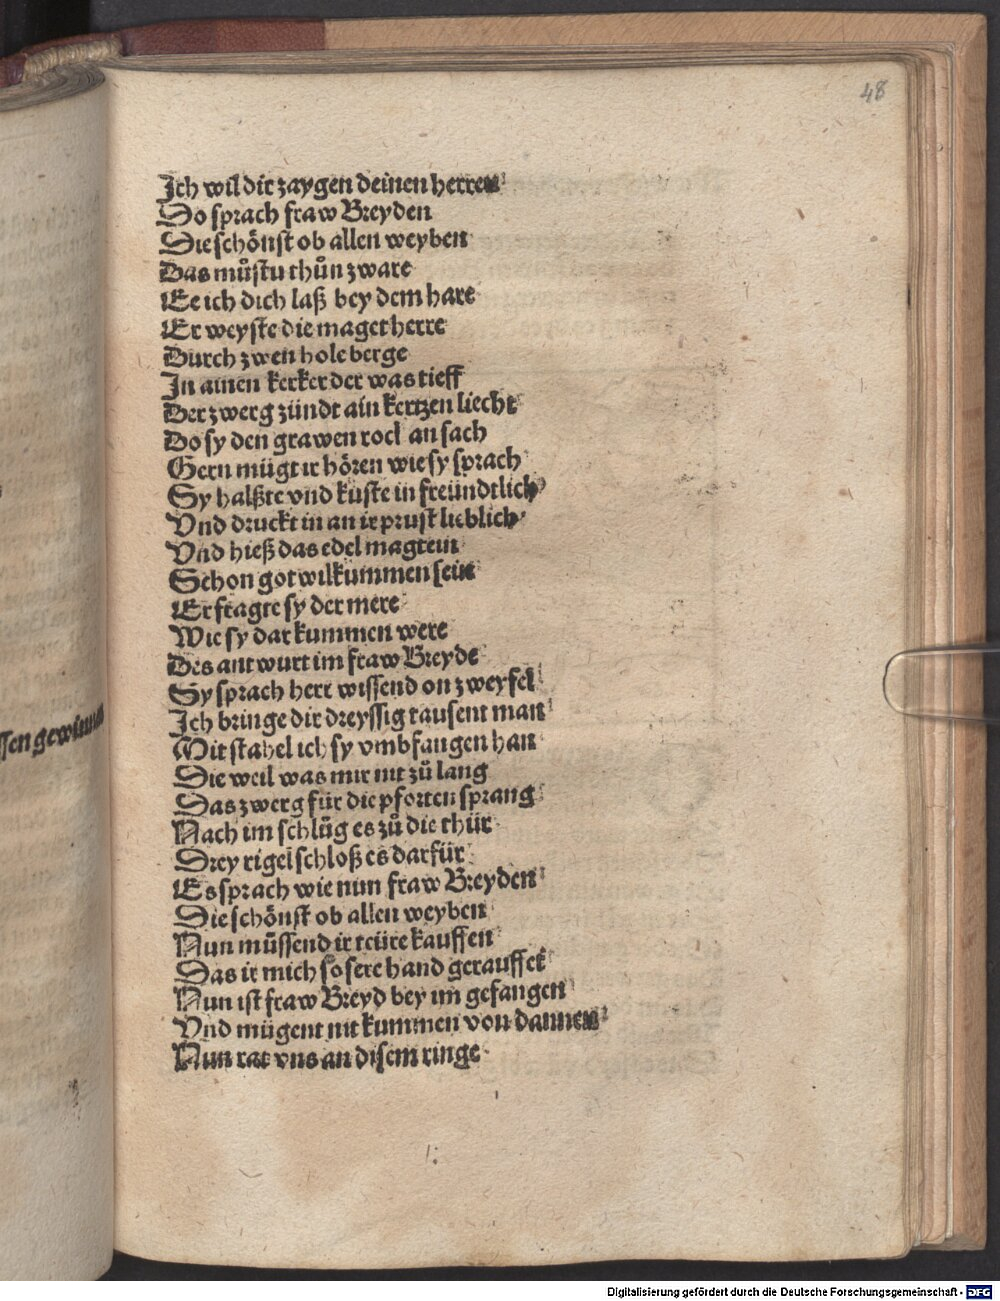 48
Ich wil dir zaygen deinen herren
Do sprach fraw Breyden
Die schönst ob allen weyben
Das můstu thůn zware
Ee ich dich laß bey dem hare
Er weyste die maget herre
Durch zwen hole berge
In ainen kerker der was tieff
Der zwerg zündt ain kertzen liecht
Do sy den grawen rock an sach
Gern mügt ir hören wie sy sprach
Sy halßte vnd kuste in freündtlich
Vnd druckt in an ir prust lieblich
Vnd hieß das edel magtein
Schon got wilkummen sein
Er fragte sy der mere
Wie sy dar kummen were
Des antwurt im fraw Breyde
Sy sprach herr wissend on zweyfel
Ich bringe dir dreyssig tausent man
Mit stahel ich sy vmbfangen han
Die weil was mir nit zů lang
Das zwerg für die pforten sprang
Nach im schlůg es zů die thür
Drey rigel schloß es darfür
Es sprach wie nun fraw Breyden
Die schönst ob allen weyben
Nun müssend ir teüre kauffen
Das ir mich so sere hand gerauffet
Nun ist fraw Breyd bey im gefangen
Vnd mügent nit kummen von dannen
Nun rat vns an disem ringe
ssen gewinnen
Digitalisierung gefördert durch die Deutsche Forschungsgemeinschaft - DFG